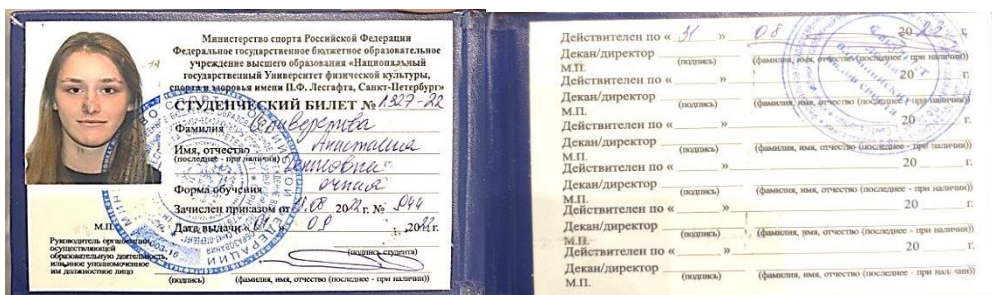 Министерство спорта Российской Федерации
Федеральное государственное бюджетное образовательное
учреждение высшего образования «Национальный
государственный Университет физической культуры,
спорта и здоровья имени П.Ф. Лесгафта, Санкт-Петербург»
СТУДЕНЧЕСКИЙ БИЛЕТ № 1327-22
Фамилия
Имя, отчество Анастасия
(последнее - при наличии)
Форма обучения очная
Зачислен приказом от .08 2022 г. № 044
М.П. Дата выдачи « » 09 2022 г.
Руководитель организации,
осуществляющей
образовательную деятельность,
или иное уполномоченное
им должностное лицо
(подпись студента)
(подпись) (фамилия, имя, отчество (последнее - при наличии))
Действителен по « 31 » 08 20 23 г.
Декан/директор
М.П. (подпись) (фамилия, имя, отчество (последнее - при наличии))
Действителен по « » 20 г.
Декан/директор
М.П. (подпись) (фамилия, имя, отчество (последнее - при наличии))
Действителен по « » 20 г.
Декан/директор
М.П. (подпись) (фамилия, имя, отчество (последнее - при наличии))
Действителен по « » 20 г.
Декан/директор
М.П. (подпись) (фамилия, имя, отчество (последнее - при наличии))
Действителен по « » 20 г.
Декан/директор
М.П. (подпись) (фамилия, имя, отчество (последнее - при наличии))